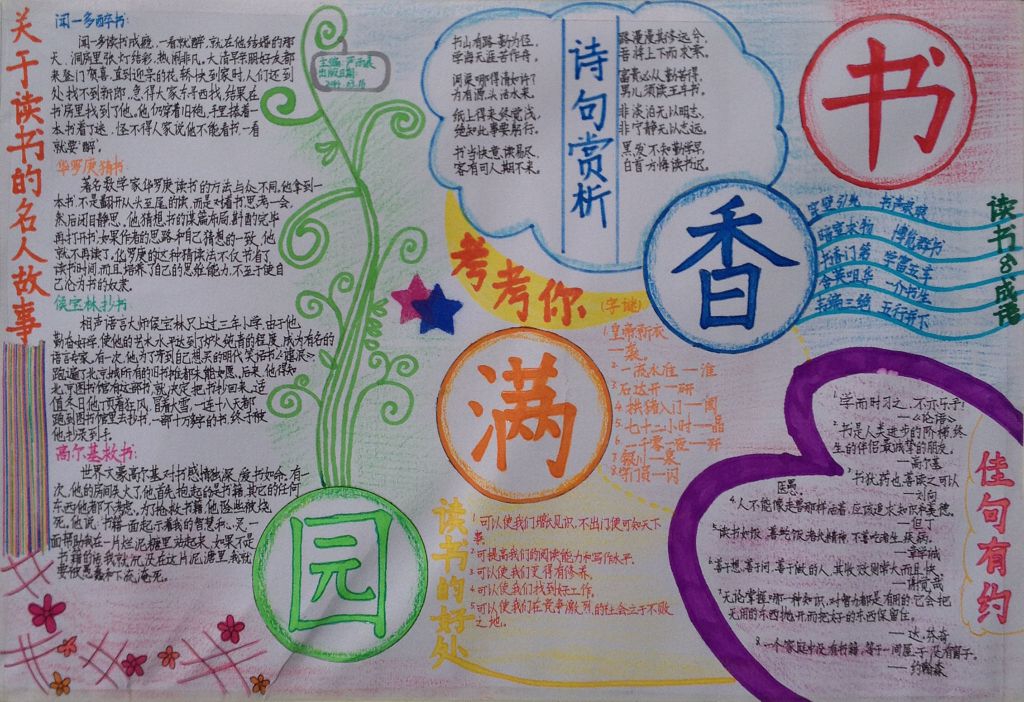 关于读书的名人故事
闻一多醉书:
闻一多读书成瘾,一看就醉,就在他结婚的那
天,洞房里张灯结彩,热闹非凡。大清早亲朋好友都
来登门贺喜,直到迎亲的花轿快到家时,人们还到
处找不到新郎。急得大家东寻西找,结果在
书房里找到了他。他仍穿着旧袍,手里捧着一
本书看了迷。怪不得人家说他不能看书,一看
就要"醉"。
华罗庚猜书
著名数学家华罗庚读书的方法与众不同。他拿到一
本书,不是翻开从头至尾的读,而是对着书思考一会,
然后闭目静思。他猜想书的谋篇布局,斟酌完毕
再打开书,如果作者的思路和自己猜想的一致,他
就不再读了。华罗庚的这种猜读法不仅节省了
读书时间,而且培养了自己的思维能力,不至于使自
己沦为书的奴隶。
侯宝林抄书
相声语言大师侯宝林只上过三年小学,由于他
勤奋好学,使他的艺术水平达到了炉火纯青的程度,成为有名的
语言专家。有一次,他为了寻到自己想买的明代笑话书《谑浪》,
跑遍了北京城所有的旧书摊都未能如愿。后来,他得知
北京图书馆有这部书,就决定把书抄回来。适
值冬日,他顶着狂风,冒着大雪,一连十八天都
跑到图书馆里去抄书,一部十万多字的书,终于被
他抄录到手。
高尔基救书:
世界文豪高尔基对书感情独深,爱书如命。有一
次,他的房间失火了,他首先抱起的是书籍,其它的任何
东西他都不考虑。为了抢救书籍,他险些被烧
死。他说:书籍一面启示着我的智慧和心灵,一
面帮助我在一片烂泥塘里站起来,如果不是
书籍的话,我就沉没在这片泥塘里,我就
要被愚蠢和下流淹死。
主编:
出版日期:
诗句赏析
书山有路勤为径,
学海无涯苦作舟。
问渠哪得清如许?
为有源头活水来。
纸上得来终觉浅,
绝知此事要躬行。
书当快意读易尽,
客有可人期不来。
路漫漫其修远兮,
吾将上下而求索。
富贵必从勤苦得,
男儿须读五车书。
非淡泊无以明志,
非宁静无以志远。
黑发不知勤学早,
白首方悔读书迟。
书
香
满
园
读书的成语
凿壁引光
映雪囊萤 博览群书
书香门第 学富五车
含英咀华 一介书生
韦编三绝 五行并下
考考你
(字谜)
1.皇帝新衣
—袭。
2.一流水准—淮
3.石达开—研
4.拱猪入门—阂
5.七十二小时—晶
6.一千零一夜—歼
7.银川—泉
读书的好处
1.可以使我们增长见识,不出门便可知天下
事。
2.可提高我们的阅读能力和写作水平。
3.可以使我们变得有修养。
4.可以使我们找到好工作。
5.可以使我们在竞争激烈的社会立于不败
之地。
佳句有约
1.学而时习之,不亦乐乎!
—《论语》
2.书是人类进步的阶梯,终
生的伴侣,最诚挚的朋友。
—高尔基
3.书犹药也,善读之可以
医愚。
—刘向
4.人不能像走兽那样活着,应该追求知识和美德。
—但丁
5.读书如饭,善吃饭者长精神,不善吃者生疾病。
—章学诚
6.善于想、善于问、善于做的人,其收效则常大而且快
7.无论掌握哪一种知识,对智力都是有用的,它会把
无用的东西抛开而把好的东西保留住。
—达.芬奇
8.一个家庭中没有书籍,等于一间屋子没有窗子。
—约翰森